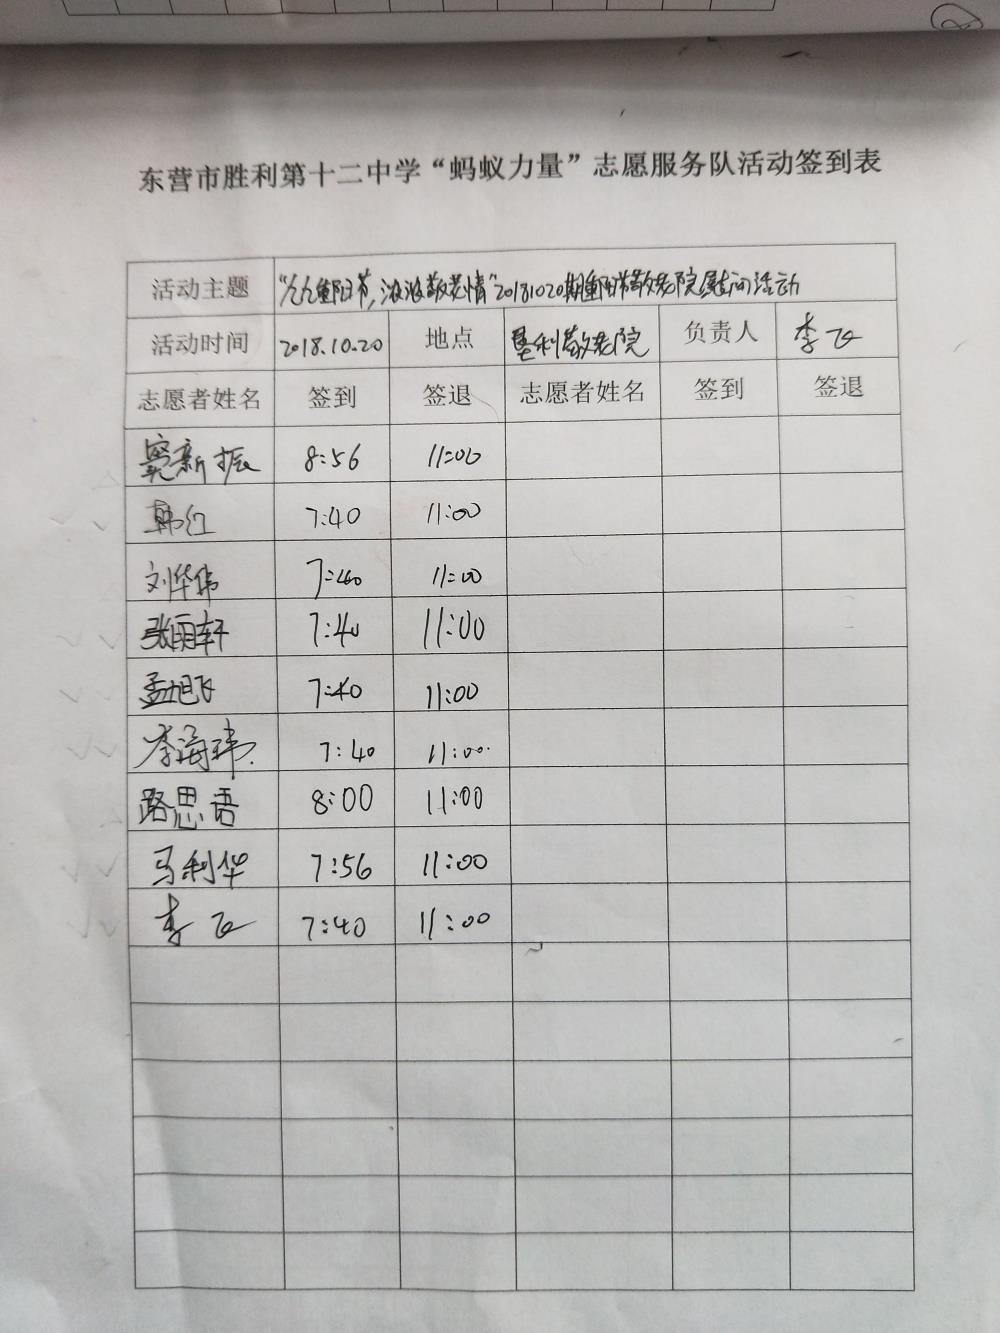 东营市胜利第十二中学“蚂蚁力量”志愿服务队活动签到表
活动主题 “九九重阳节，浓浓敬老情”20181020期重阳节敬老院慰问活动
活动时间 2018.10.20 地点 垦利敬老院 负责人 李飞
志愿者姓名 签到 签退 志愿者姓名 签到 签退
窦新振 8:56 11:00
韩红 7:40 11:00
刘华伟 7:40 11:00
张雨轩 7:40 11:00
孟旭飞 7:40 11:00
李海玮 7:40 11:00
路思语 8:00 11:00
马利华 7:56 11:00
李飞 7:40 11:00